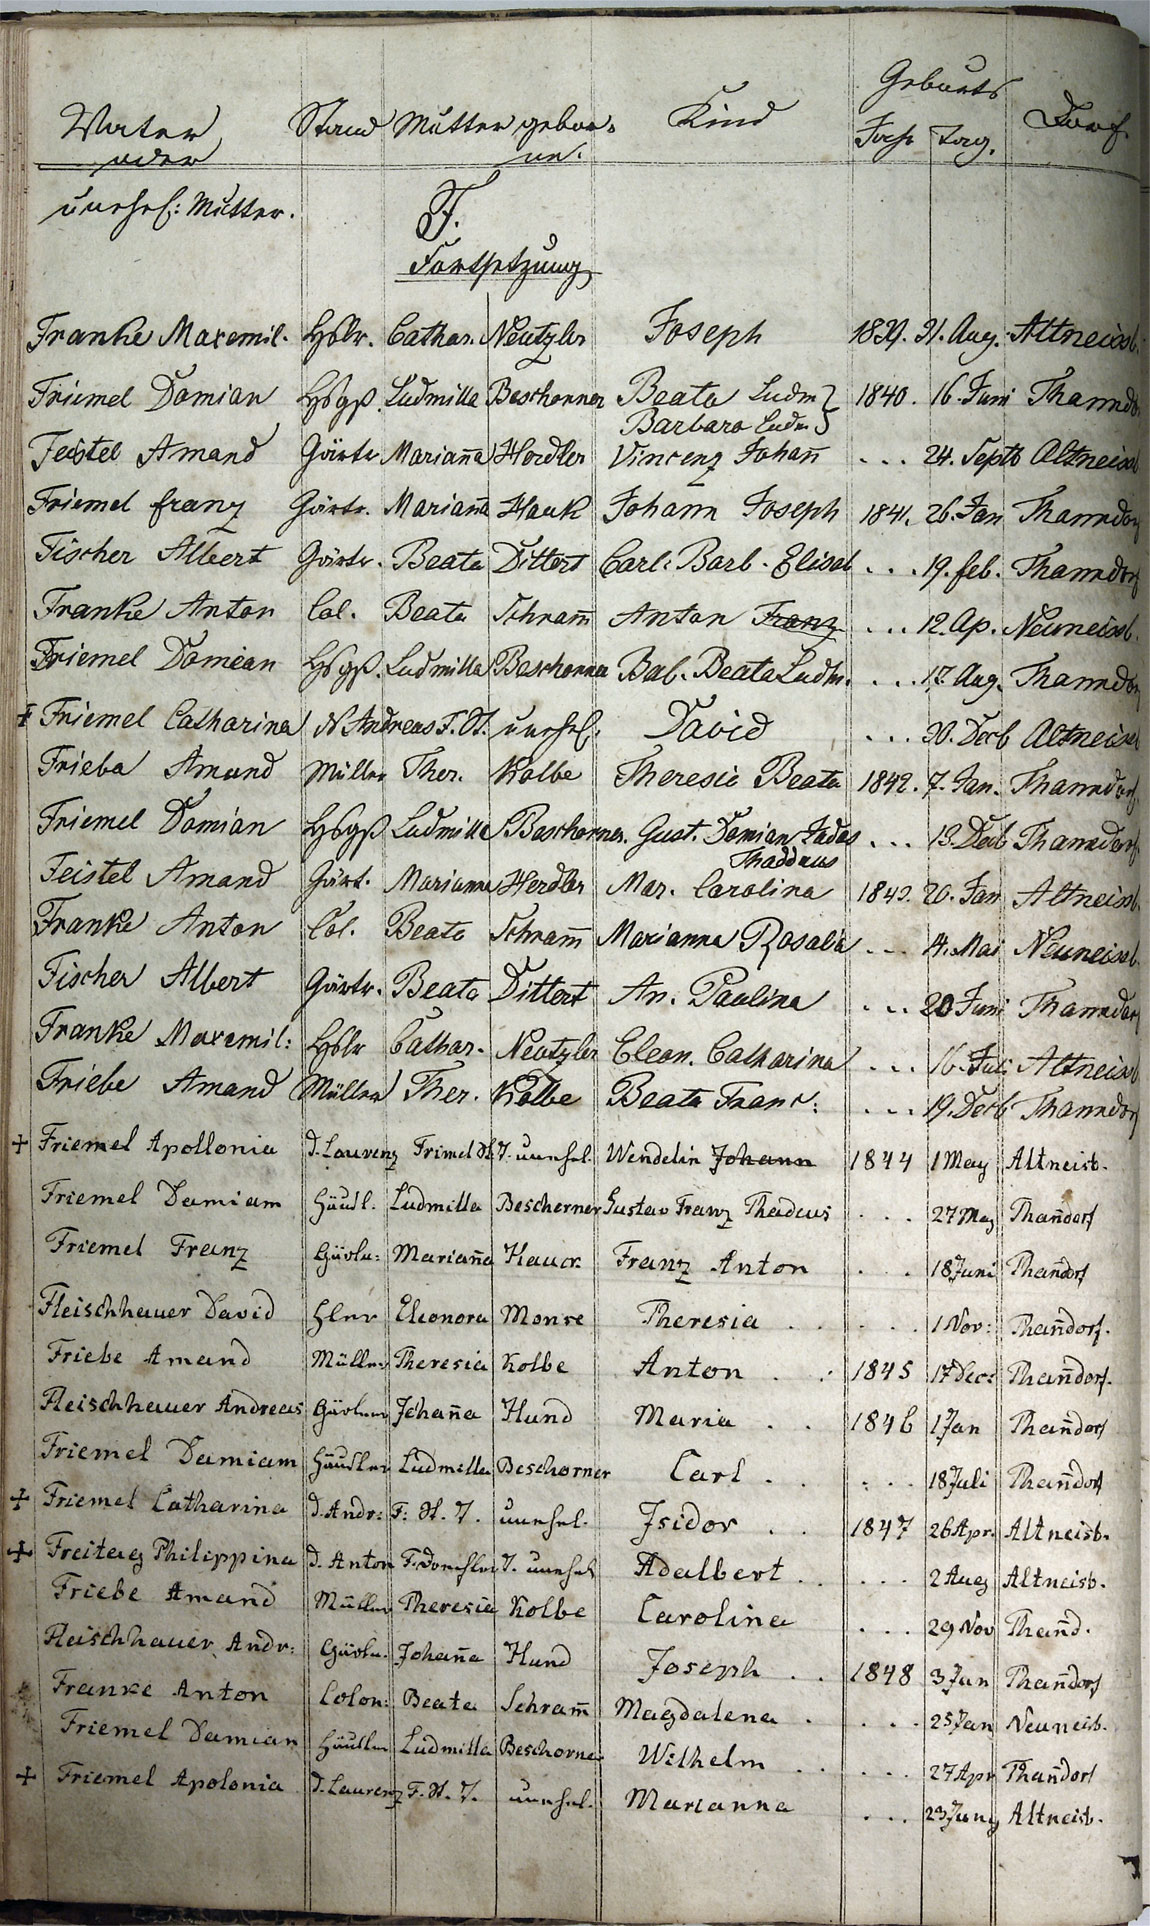 Geburts
Vater Stand Mutter gebor= Kind Jahr Tag. Dorf
oder ne.
unehel: Mutter.
F.
Fortsetzung
Franke Maxemil. Hslr. Cathar. Neutzler Joseph 1839. 31. Aug. Altneissb.
Friemel Damian Hsgß. Ludmilla Beschorner Beata Ludm } 1840. 16. Juni Thanndo
Barbara Ludm }
Feistel Amand Gärtr. Mariana Herdler Vincenz Johan̅ ... 24. Septb Altneissb
Friemel Franz Gärtr. Marian̅a Hauk Johann Joseph 1841. 26. Jan Thanndor
Fischer Albert Gärtr. Beata Dittert Carl: Barb. Elisab ... 19. feb. Thanndorf
Franke Anton Col. Beata Schram̅ Anton Franz ... 12. Ap. Neuneissb.
Friemel Damian Hsgß. Ludmilla Beschorner Bab. Beata Ludm. ... 17. Aug. Thanndor
+ Friemel Catharina N. Andreas F. St. unehel. David ... 30. Decb Altneissb
Frieba Amand Müller Ther. Kolbe Theresia Beata 1842. 7. Jan. Thanndorf
Friemel Damian Hsgß Ludmilla Beschorner. Gust. Damian Judas ... 13. Decb Thanndorf
Thaddaus
Feistel Amand Gärt. Marianna Herdler Mar. Carolina 1843. 20. Jan Altneissb.
Franke Anton Col. Beata Schram̅ Marianna Rosalia ... 4. Mai Neuneissb.
Fischer Albert Gärtr. Beata Dittert An. Paulina ... 20 Juni Thanndorf
Franke Maxemil: Hslr Cathar. Neutzler Eleon. Catharina ... 16. Juli Altneissb
Friebe Amand Müller Ther. Kolbe Beata Franc: ... 19. Decb Thanndorf
+ Friemel Apollonia d. Laurenz Frimel St. T. unehel. Wendelin Johann 1844 1 May Altneisb.
Friemel Damiam Häusl. Ludmilla Bescherner Gustav Franz Thadeus ... 27 May Than̅dorf
Friemel Franz Gärtn: Marian̅a Hauck Franz Anton ... 18 Juni Than̅dorf
Fleischhauer David Hler Eleonora Monse Theresia ... 1 Nov: Than̅dorf.
Friebe Amand Müller Theresia Kolbe Anton . . 1845 17 Dec: Than̅dorf.
Fleischhauer Andreas Gärtner Johan̅a Hund Maria . . 1846 1 Jan Than̅dorf
Friemel Damiam Häusler Ludmilla Beschorner Carl . ... 18 Juli Than̅dorf
+ Friemel Catharina d. Andr: F: St. T. unehel. Isidor . . 1847 26 Apr. Altneisb.
+ Freitag Philippina d. Anton F. T. unehel Adalbert ... 2 Aug Altneisb.
Friebe Amand Müller Theresia Kolbe Carolina ... 29 Nov Than̅d.
Fleischhauer Andr: Gärtn. Johan̅a Hund Joseph . . 1848 3 Jan Than̅dorf
Franke Anton Colon: Beata Schram̅ Magdalena . ... 25 Jan Neuneisb.
Friemel Damian Häusler Ludmilla Beschorner Wilhelm ... 27 Apr Than̅dorf
+ Friemel Apolonia d. Laurenz F. St. T. unehel. Marianna ... 23 Juny Altneisb.